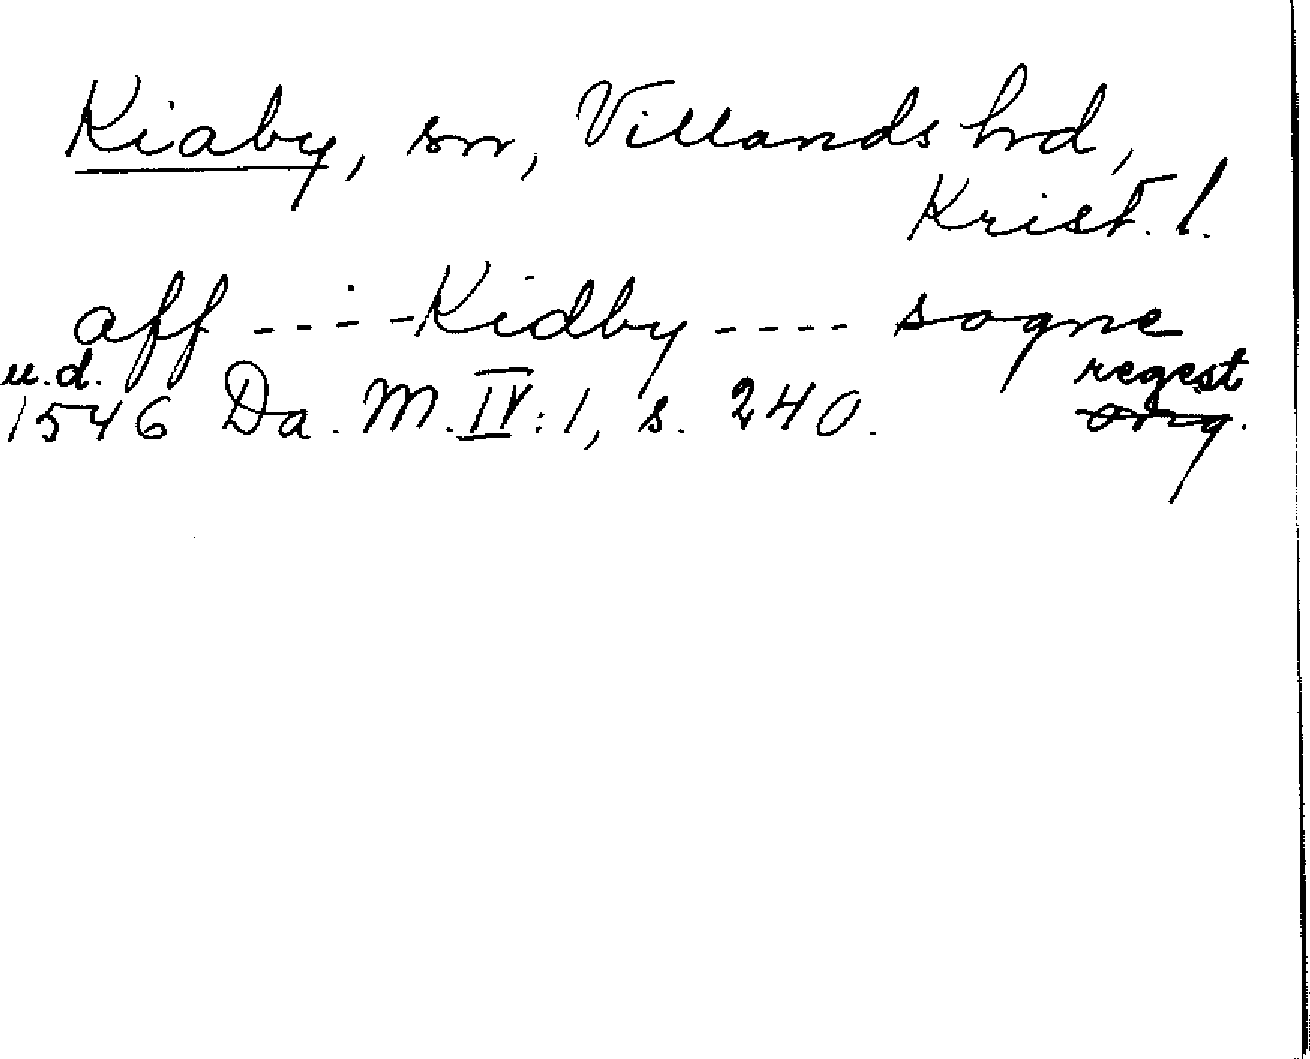 Kiaby, sn, Villands hd,
Krist. l.
aff - - - - Kidby - - - - sogne
u.d. regest
1546 Da. M. IV: 1, s. 240. orig.